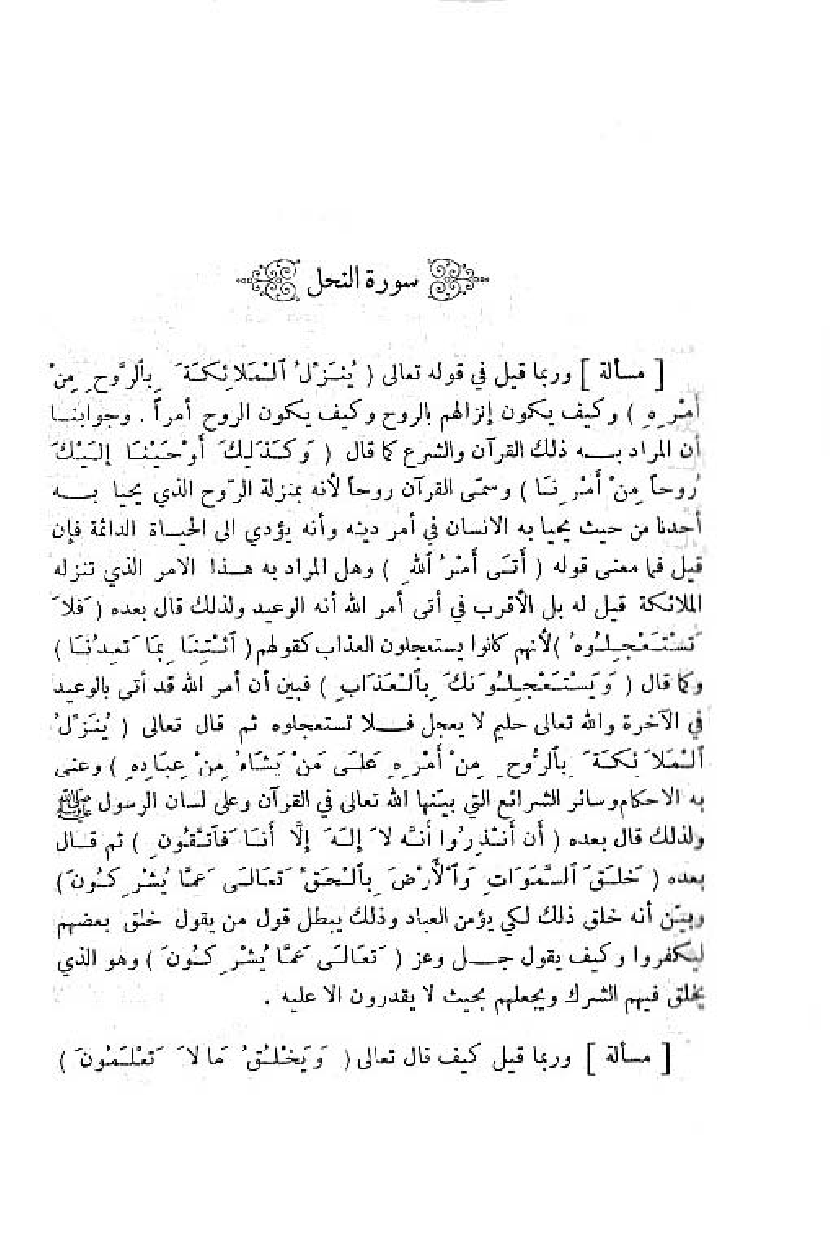 سورة النحل
[ مسألة ] وربما قيل في قوله تعالى ( يُنَزِّلُ ٱلْمَلائِكَةَ بِٱلرُّوحِ مِنْ
أَمْرِهِ ) وكيف يكون إنزالهم بالروح وكيف يكون الروح أمراً . وجوابنا
أن المراد بـه ذلك القرآن والشرع كما قال ( وَكَذَلِكَ أَوْحَيْنَا إِلَيْكَ
رُوحاً مِنْ أَمْرِنَا ) وسمّى القرآن روحاً لأنه بمنزلة الرّوح الذي يحيا بـه
أحدنا من حيث يحيا به الانسان في أمر دينه وأنه يؤدي الى الحياة الدائمة فإن
قيل فما معنى قوله ( أَتَى أَمْرُ ٱللهِ ) وهل المراد به هـذا الامر الذي تنزله
الملائكة قيل له بل الأقرب في أتى أمر الله أنه الوعيد ولذلك قال بعده ( فَلاَ
تَسْتَعْجِلُوهُ ) لأنهم كانوا يستعجلون العذاب كقولهم ( ٱئْتِنَا بِمَا تَعِدُنَا )
وكما قال ( وَيَسْتَعْجِلُونَكَ بِٱلْعَذَابِ ) فبين أن أمر الله قد أتى بالوعيد
في الآخرة والله تعالى حليم لا يعجل فـلا تستعجلوه ثم قال تعالى ( يُنَزِّلُ
ٱلْمَلاَئِكَةَ بِٱلرُّوحِ مِنْ أَمْرِهِ عَلَى مَنْ يَشَاءُ مِنْ عِبَادِهِ ) وعنى
به الاحكام وسائر الشرائع التي بيّنها الله تعالى في القرآن وعلى لسان الرسول ﷺ
ولذلك قال بعده ( أَن أَنْذِرُوا أَنَّه لاَ إِلهَ إِلَّا أَنَا فَٱتَّقُونِ ) ثم قـال
بعده ( خَلَقَ ٱلسَّمَوَاتِ وَٱلأَرْضَ بِٱلْحَقِّ تَعَالَى عَمَّا يُشْرِكُونَ )
وبيّن أنه خلق ذلك لكي يؤمن العباد وذلك يبطل قول من يقول خلق بعضهم
ليكفروا وكيف يقول جـل وعز ( تَعَالَى عَمَّا يُشْرِكُونَ ) وهو الذي
يخلق فيهم الشرك ويجعلهم بحيث لا يقدرون الا عليه .
[ مسألة ] وربما قيل كيف قال تعالى ( وَيَخْلُقُ مَا لاَ تَعْلَمُونَ )